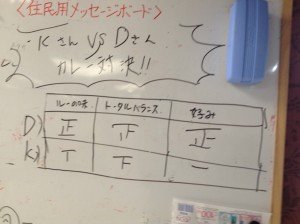 <住民用メッセージボード>
Kさん VS Dさん
カレー対決!!
ルーの味 トータルバランス 好み
D) 正 正 正
K) T 下 一